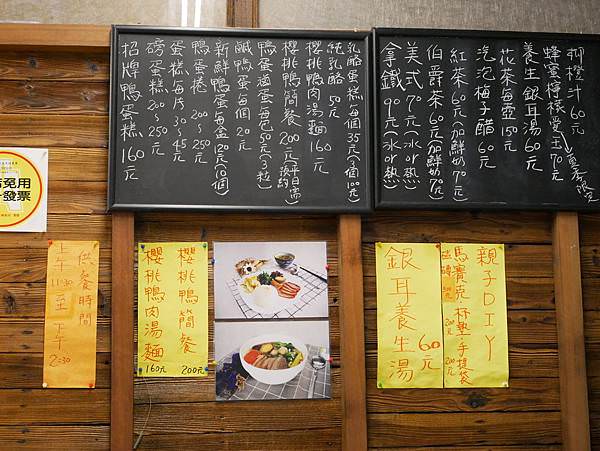 柳橙汁 60元
蜂蜜檸檬愛玉 70元 →夏季限定
養生銀耳湯 60元
花茶每壺 150元
泡泡梅子醋 60元
紅茶 60元(加鮮奶70元)
伯爵茶 60元(加鮮奶70元)
美式 70元(冰or熱)
拿鐵 90元(冰or熱)
乳酪蛋糕 每個35元(3個100元)
純乳酪 50元
櫻桃鴨肉湯麵 160元
櫻桃鴨簡餐 200元(平日需預約)
鴨蛋滷蛋每包50元(3粒)
鹹鴨蛋每個 20元
新鮮鴨蛋每盒120元(10個)
鴨蛋捲 200~250元
蛋糕每片 30~45元
磅蛋糕 200~250元
招牌鴨蛋糕 160元
免用
發票
供餐時間
上午11:30至下午2:30
櫻桃鴨簡餐 200元
櫻桃鴨肉湯麵 160元
親子DIY
馬賽克 杯墊·手提袋
200元 200元
銀耳養生湯 60元